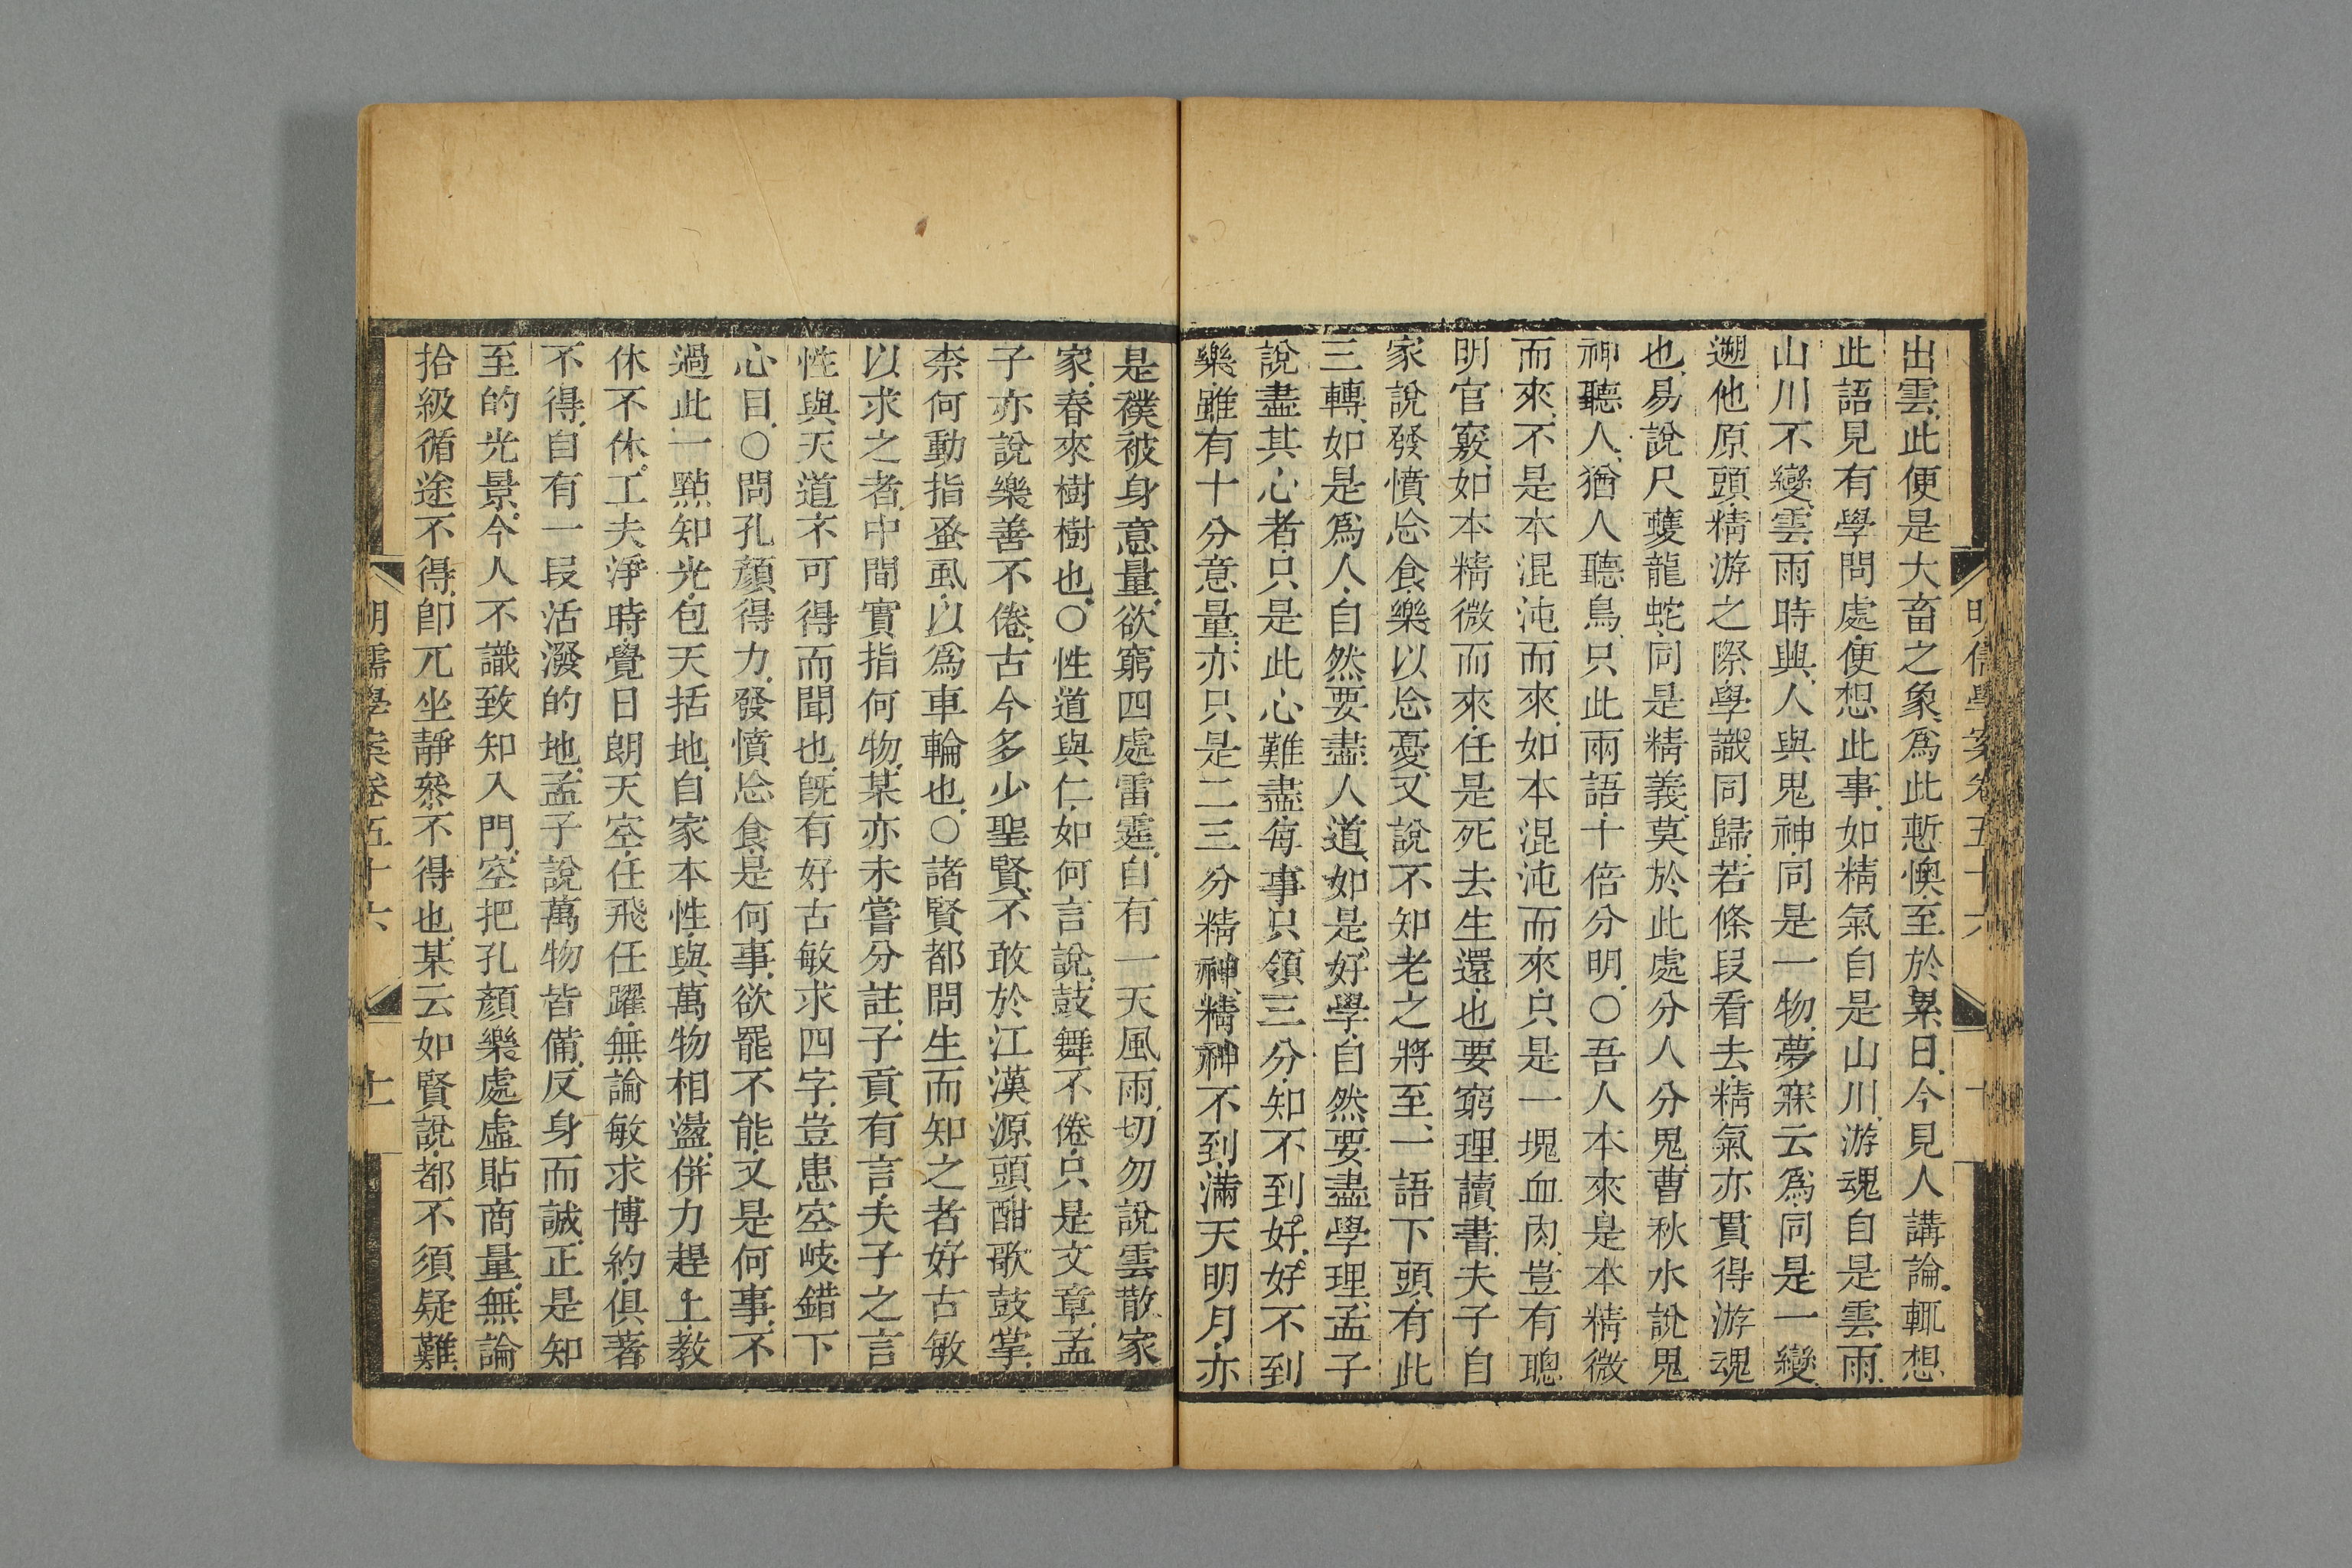 明儒學案卷五十六
十
出雲、此便是大畜之象、爲此慙懊、至於累日、今見人講論、輒想
此語見有學問處、便想此事、如精氣自是山川、游魂自是雲雨、
山川不變、雲雨時興、人與鬼神、同是一物、夢寐云爲、同是一變、
遡他原頭、精游之際、學識同歸、若條段看去、精氣亦貫得游魂
也、易說尺蠖龍蛇、同是精義、莫於此處分人分鬼、曹秋水說鬼
神聽人、猶人聽鳥、只此兩語、十倍分明、○吾人本來、是本精微
而來、不是本混沌而來、如本混沌而來、只是一塊血肉、豈有聰
明官竅、如本精微而來、任是死去生還、也要窮理讀書、夫子自
家說發憤忘食、樂以忘憂、又說不知老之將至、一語下頭、有此
三轉、如是爲人、自然要盡人道、如是好學、自然要盡學理、孟子
說盡其心者、只是此心難盡、每事只領三分、知不到好、好不到
樂、雖有十分意量、亦只是二三分精神、精神不到、滿天明月、亦
是襆被身意量、欲窮四處雷霆、自有一天風雨、切勿說雲散家
家、春來樹樹也、○性道與仁、如何言說、鼓舞不倦、只是文章、孟
子亦說樂善不倦、古今多少聖賢、不敢於江漢源頭酣歌鼓掌、
柰何動指蚤虱、以爲車輪也、○諸賢都問生而知之者好古敏
以求之者、中間實指何物、某亦未嘗分註、子貢有言、夫子之言
性與天道不可得而聞也、旣有好古敏求四字、豈患空岐錯下
心目、○問孔顏得力、發憤忘食、是何事、欲罷不能、又是何事、不
過此一點知光、包天括地、自家本性、與萬物相盪、併力趕上、教
休不休、工夫淨時、覺日朗天空、任飛任躍、無論敏求博約、俱著
不得、自有一段活潑的地、孟子說萬物皆備、反身而誠、正是知
至的光景、今人不識致知入門、空把孔顏樂處虛貼商量、無論
拾級循途不得、卽兀坐靜參、不得也、某云如賢說、都不須疑難、
明儒學案卷五十六
十一